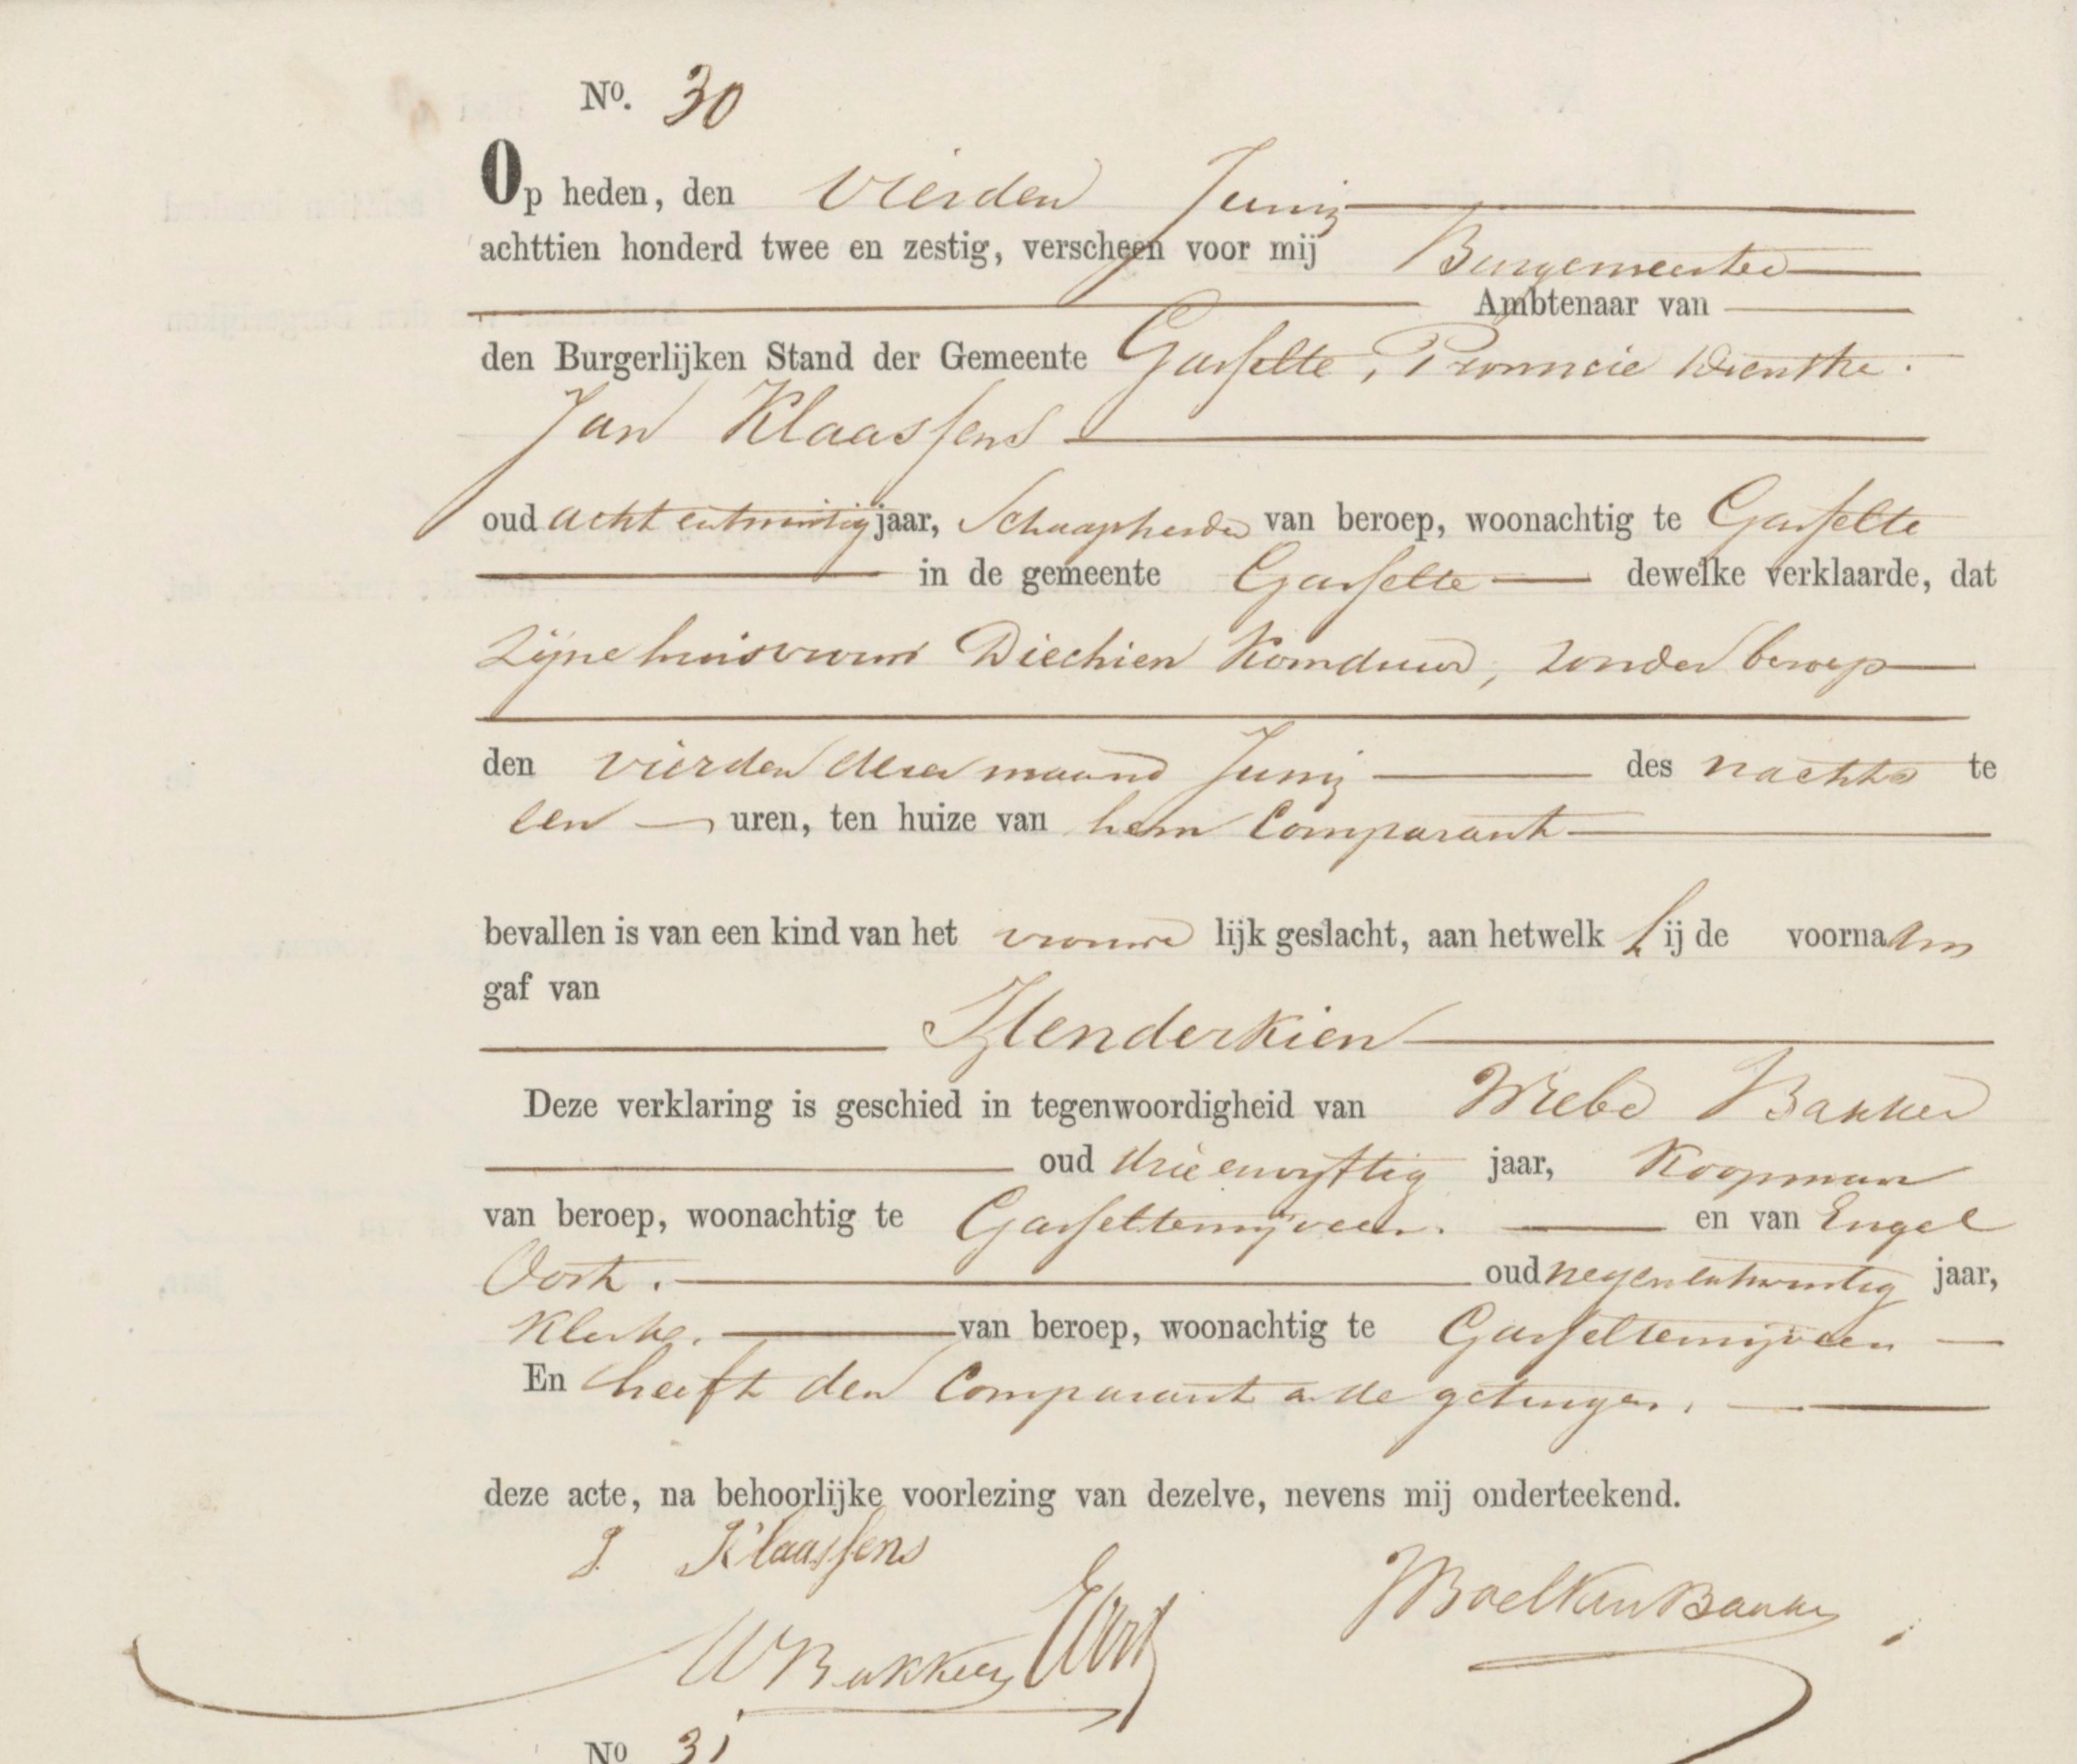 No. 30
Op heden, den vierden Junij
achttien honderd twee en zestig, verscheen voor mij Burgemeester
Ambtenaar van
den Burgerlijken Stand der Gemeente Gasselte, Provincie Drenthe.
Jan Klaassens
oud acht entwintig jaar, Schaapherder van beroep, woonachtig te Gasselte
in de gemeente Gasselte dewelke verklaarde, dat
zijne huisvrouw Diechien Komduur, zonder beroep
den vierden dezer maand Junij des nachts te
een uren, ten huize van hem Comparant
bevallen is van een kind van het vrouwe lijk geslacht, aan hetwelk hij de voornaam
gaf van
Henderkien
Deze verklaring is geschied in tegenwoordigheid van Wiebe Bakker
oud drie envyftig jaar, Koopman
van beroep, woonachtig te Gasselternijveen. en van Engel
Oort. oud negenentwintig jaar,
Klerk. van beroep, woonachtig te Gasselternijveen
En heeft den Comparant en de getuigen,
deze acte, na behoorlijke voorlezing van dezelve, nevens mij onderteekend.
J Klaassens
W Bakker EOort
No 31